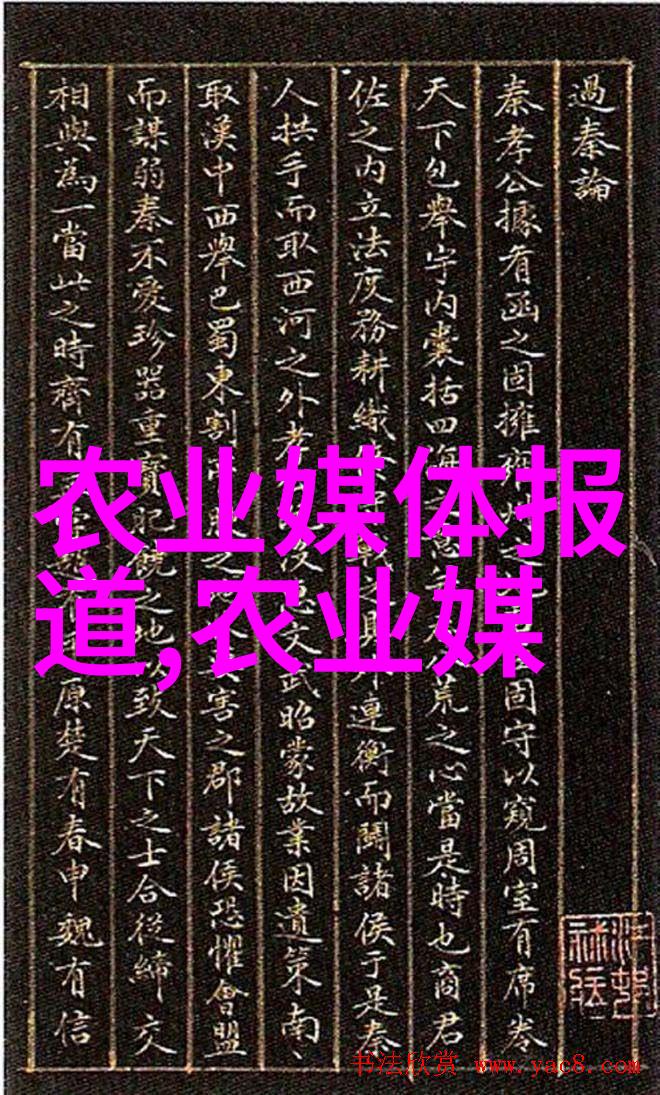 過秦論
秦孝公據有函之固擁雍州之固守以窺周室有席卷
天下包舉宇内囊括四海之荒之心當是時也商君
佐之内立法度務耕織連衡而鬪諸侯于是秦
人拱手而取西河之外孝文武昭蒙故業因遺策南、
取漢中西舉巴蜀東割之害之郡諸侯恐懼會盟
而謀弱秦不愛珍器重寶肥饒之地以致天下之士合從締交
相與爲一當此之時齊有原楚有春申魏有信
农业媒体报
道,农业媒
书法欣赏 www.yac8.com